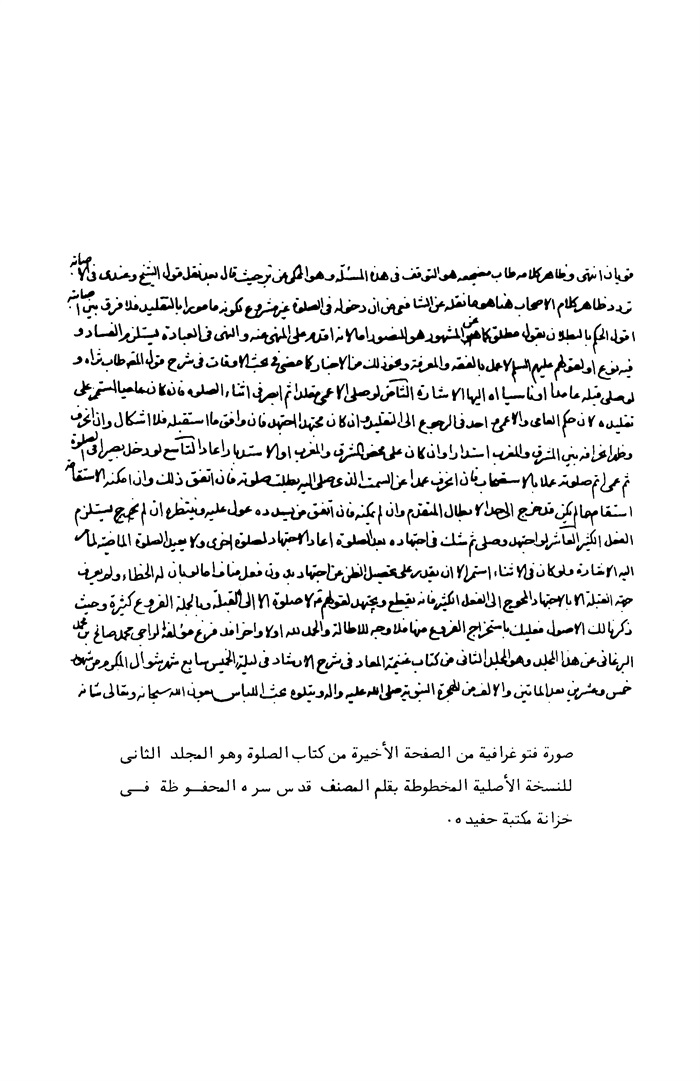 قويان انتهى وظاهر كلامه طاب مضجعه هو التوقف فى هذه المسئلة وهو المحكى عن حيث قال بعد نقل قول الشيخ وعندى فى الاصابة
تردد ظاهر كلام الاصحاب هنا هو ما نقله عن الشافعى من ان دخوله فى الصلوة غير مشروع لكونه مامورا بالتقليد فلا فرق بين اصابته
اقول الحكم بالبطلان بقول مطلق كما هو عن المشهور هو المنصور اما لانه اقدم على المنهى عنه والنهى فى العبادة يستلزم الفساد و
فيه نوع او لقولهم عليهم السلم لا عمل الا بالفقه والمعرفة ونحو ذلك من الاخبار كما مضى فى بحث الاوقات فى شرح قول المصنف طاب ثراه و
لو صلى قبله عامدا او ناسيا اه اليها الاشارة الثامن لو صلى الاعمى مقلدا ثم ابصر فى اثناء الصلوه فان كان عاميا استمر على
تقليده لان حكم العامى والاعمى واحد فى الرجوع الى التقليد وان كان مجتهدا اجتهد فان وافق ما استقبله فلا اشكال وان انحرف
وظهر انحرافه بين المشرق والمغرب استدار وان كان على محض المشرق والمغرب او الاستدبار اعاد التاسع لو دخل بصيرا فى الصلوة
ثم عمى اتم صلوته عملا بالاستصحاب فان انحرف عمدا عن السمت الذى صلى اليه بطلت صلوته فان اتفق ذلك وان امكنه الاستقامة
استقام ما لم يكن قد خرج الى حد الابطال المتقدم وان لم يمكنه فان اتفق من يسدده عول عليه وينتظره ان لم يخرج يستلزم
الفعل الكثير العاشر لو اجتهد وصلى ثم شك فى اجتهاده بعد الصلوة اعاد الاجتهاد لصلوة اخرى ولا يعيد الصلوة الماضية لما مر
اليه الاشارة ولو كان فى الاثناء استمر الا ان يقدر على تحصيل الظن عن اجتهاد بدون فعل مناف اما لو بان له الخطاء ولم يعرف
جهة القبلة الا بالاجتهاد المحوج الى الفعل الكثير فانه يقطع ويجتهد لقولهم لا صلوة الا الى القبلة وبالجملة الفروع كثيرة وحيث
ذكرنا لك الاصول فعليك باستخراج الفروع منها فلا وجه للاطالة والحمد لله اولا واخرا قد فرغ مؤلفه الراجى محمد صالح بن محمد
البرغانى عن هذا المجلد وهو المجلد الثانى من كتاب غنيمة المعاد فى شرح الارشاد فى ليلة الخميس سابع شهر شوال المكرم من شهور
خمس وعشرين بعد الماتين والالف من الهجرة النبوية صلى الله عليه واله ويتلوه بحث اللباس بعون الله سبحانه وتعالى شانه
صورة فتوغرافية من الصفحة الأخيرة من كتاب الصلوة وهو المجلد الثانى
للنسخة الأصلية المخطوطة بقلم المصنف قدس سره المحفوظة فــى
خزانة مكتبة حفيده.